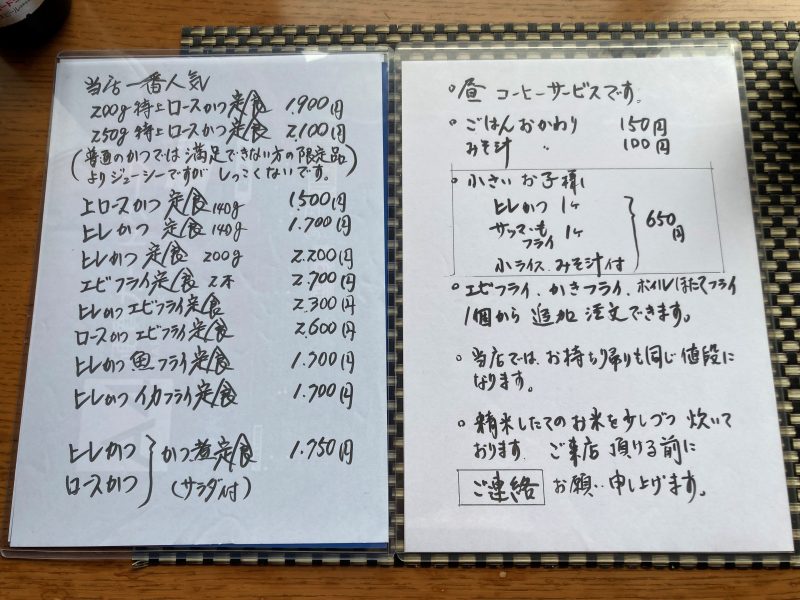 当店一番人気
200g 特上ロースかつ定食 1.900円
250g 特上ロースかつ定食 2.100円
(普通のかつでは満足できない方の限定品
よりジューシーですが しっこくないです。)
上ロースかつ 定食 140g 1.500円
ヒレかつ 定食 140g 1.700円
ヒレかつ 定食 200g 2.200円
エビフライ定食 2本 2.700円
ヒレかつエビフライ定食 2.300円
ロースかつエビフライ定食 2.600円
ヒレかつ 魚フライ定食 1.700円
ヒレかつイカフライ定食 1.700円
ヒレかつ
ロースかつ
かつ煮定食 1.750円
(サラダ付)
。昼 コーヒーサービスです。
。ごはんおかわり 150円
みそ汁 〃 100円
。小さいお子様
ヒレかつ 1ヶ
サツマいも
フライ 1ヶ
小ライス.みそ汁付
650
円
。エビフライ、かきフライ、ボイルほたてフライ
1個から 追加 注文できます。
。当店では、お持ち帰りも同じ値段に
なります。
。精米したてのお米を少しづつ 炊いて
おります. ご来店 頂ける前に
ご連絡 お願い申し上げます。